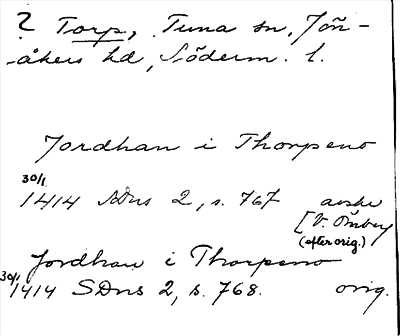 ? Torp, Tuna sn, Jön-
åkers hd, Söderm. l.
Jordhan i Thorpeno
30/1
1414 SDns 2, s. 767 avskr
[V. Örberg
(efter orig.)
Jordhan i Thorpeno
30/1 1414 SDns 2, s. 768. orig.